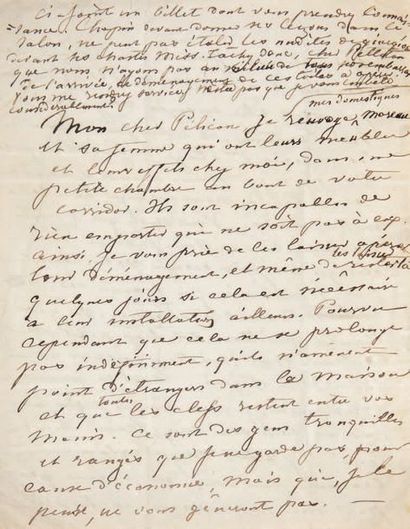 Ci joint un billet dont vous prendrez connais
sance. Chopin devant donner ses leçons dans le
salon, ne peut pas étaler les nudités de
devant les chastes Miss. Tachez donc
que nous n'ayons pas
de l'arrivée, le déménagement de ces toiles
vous me rendrez service, n'est-ce pas
considérablement
mes domestiques
Mon cher Pélican, Je renvoye Moreau
et sa femme qui ont leurs meubles
et leurs effets chez moi, dans une
petite chambre au bout de votre
corridor. Ils sont incapables de
rien emporter qui ne soit pas à eux.
ainsi je vous prie de les laisser opérer
leur déménagement, et même de les laisser rester là
quelques jours si cela est nécessaire
à leur installation ailleurs. Pourvu
cependant que cela ne se prolonge
pas indéfiniment, qu'ils n'amènent
point d'étrangers dans la maison
et que toutes les clefs restent entre vos
mains. Ce sont des gens tranquilles
et rangés que je ne garde pas, pour
cause d'économie, mais qui, je le
pense, ne vous gêneront pas.